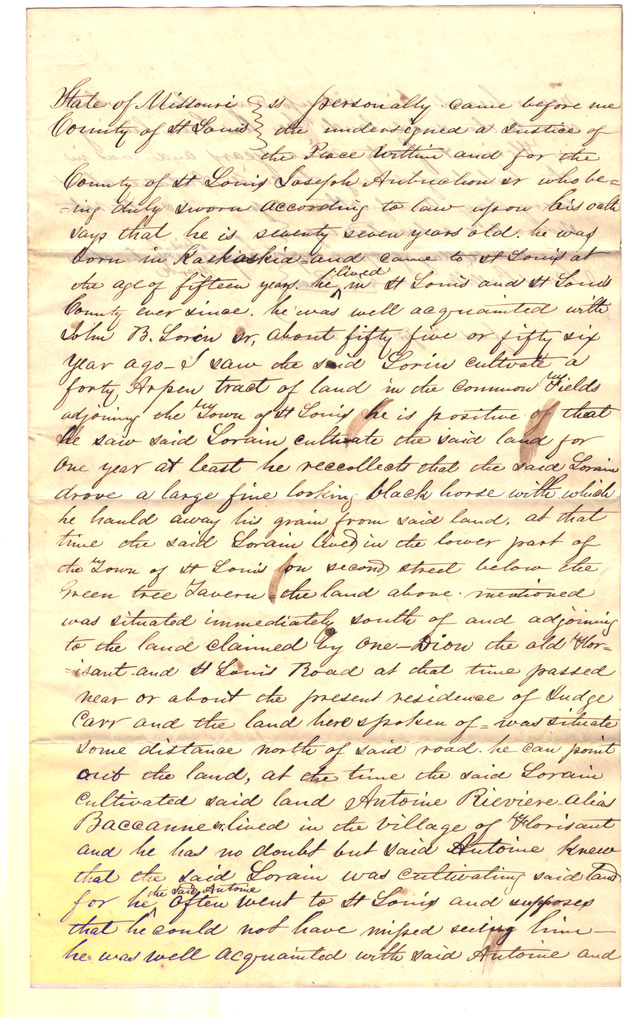 State of Missouri } st personally came before me
County of St Louis } the undersigned a Justice of
the Peace within and for the
County of St Louis Joseph Aubuchon sr who be=
=ing duly sworn according to law upon his oath
says that he is seventy seven years old. he was
born in Kaskaskia and came to St Louis at
the age of fifteen years. he lived in St Louis and St Louis
County ever since. he was well acquainted with
John B. Lorin sr, about fifty five or fifty six
year ago - I saw the said Lorin cultivate a
forty Arpen tract of land in the common Fields
adjoining the Town of St Louis he is positive of that
he saw said Lorain cultivate the said land for
one year at least he reccollects that the said Lorain
drove a large fine looking black horse with which
he hauld away his grain from said land, at that
time the said Lorain lived in the lower part of
the Town of St Louis on second street below the
Green tree Tavern the land above mentioned
was situated immediately south of and adjoining
to the land claimed by one - Dion the old Flor-
-isant and St Louis Road at that time passed
near or about the present residence of Judge
Carr and the land here spoken of = was situate
some distance north of said road. he can point
out the land, at the time the said Lorain
cultivated said land Antoine Rieviere alias
Baccanne sr. lived in the village of Florisant
and he has no doubt but said Antoine knew
that the said Lorain was cultivating said land
for he the said Antoine often went to St Louis and supposes
that he could not have missed seeing him -
he was well acquainted with said Antoine and